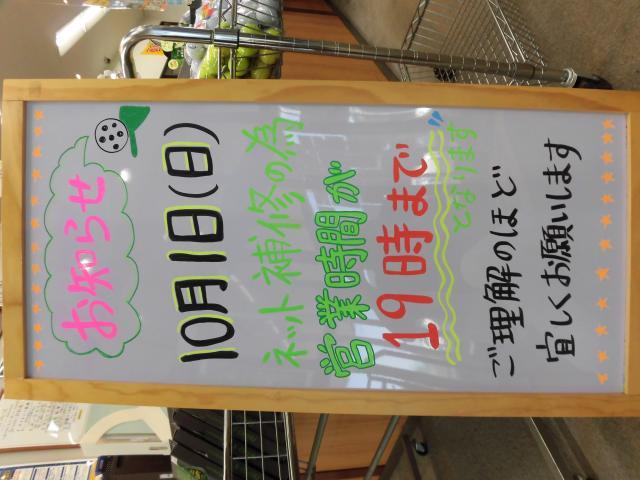 お知らせ
10月1日(日)
ネット補修の為
営業時間が
19時まで
となります
ご理解のほど
宜しくお願いします